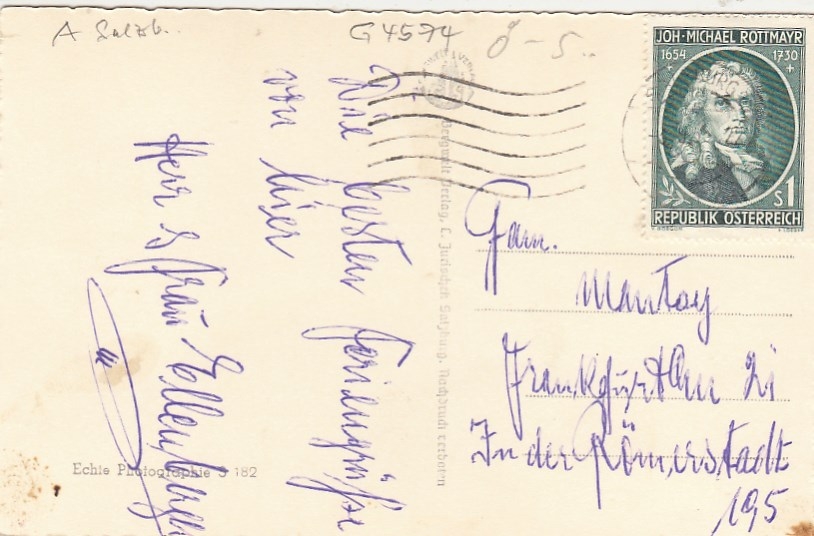 A Salzb.
G 4574
JOH·MICHAEL ROTTMAYR
1654 1730
S 1
REPUBLIK ÖSTERREICH
Die besten Feriengrüße
von hier
Herr & Frau Ellenberger
Bergwelt Verlag, C. Jurischek Salzburg. Nachdruck verboten
Fam.
Mantay
Frankfurt
In der Römerstadt
195
Echte Photographie S 182